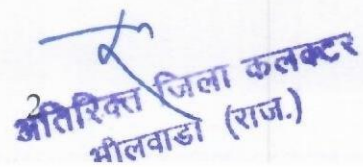 अतिरिक्त जिला कलक्टर
भीलवाडा (राज.)